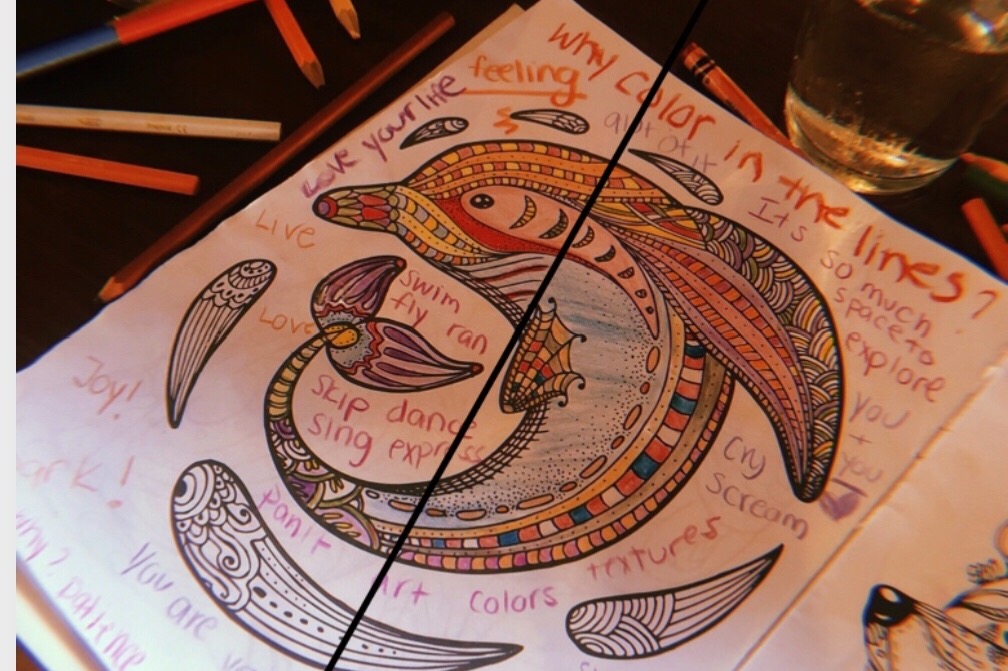 Why Color in the lines?
feeling
s
alot of it
Love your life
Its
so much
space to
explore
you
+
you
Live
Love
Swim
fly ran
Skip dance
sing express
Joy!
Cry
scream
Art Colors textures
You are
patience